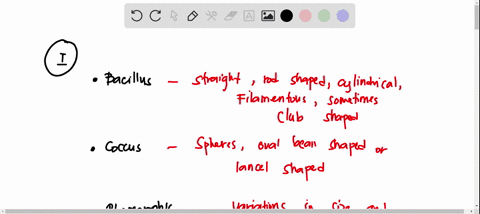 I
• Bacillus – straight, rod shaped, cylindrical,
Filamentous, sometimes
club shaped
• Coccus – Spheres, oval bean shaped or
lancel shaped
variations in size and